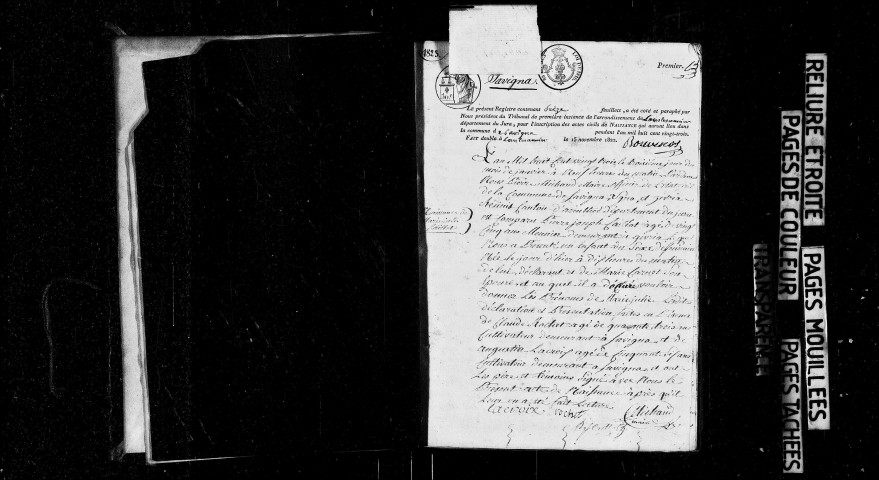 1823.
Premier.
Savigna.
Le présent Registre contenant seize feuillets, a été coté et paraphé par
Nous président du Tribunal de première instance de l'arrondissement de Lons-le-saunier
département du Jura, pour l'inscription des actes civils de NAISSANCE qui auront lieu dans
la commune de Savigna pendant l'an mil huit cent vingt-trois.
FAIT double à Lons-le-saunier le 15 novembre 1822.
L'an Mil huit Cent vingt trois le troisième jour du
mois de janvier à Neuf heures du matin Par devant
Nous Pierre Michaud Maire officier de l'état civil
de la Commune de Savigna
Réunis Canton d'arinthod département du jura
est comparu Pierre joseph agé de vingt
Cinq ans demeurant à Lequel
Nous a Présenté un enfant du Sexe féminin
Née le jour d'hier à dix heures du matin
de lui déclarant et de Marie Son
Epouse et au quel il a déclaré vouloir
donner Les Prénoms de Marie julie Lesdites
déclaration et Présentation faites en Présence
de Claude Rochet agé de quarante trois ans
Cultivateur demeurant à Savigna et de
augustin Lacroix agé de Cinquante ans
Cultivateur demeurant à Savigna et ont
Les père et témoins Signé avec Nous le
Présent acte de Naissance après qu'il
Leur en a été fait Lecture
Lacroix rochet Michaud
maire
Naissance de
Marie julie
RELIURE ETROITE
PAGES DE COULEUR
TRANSPARENTE
PAGES MOUILLEES
PAGES TACHEES